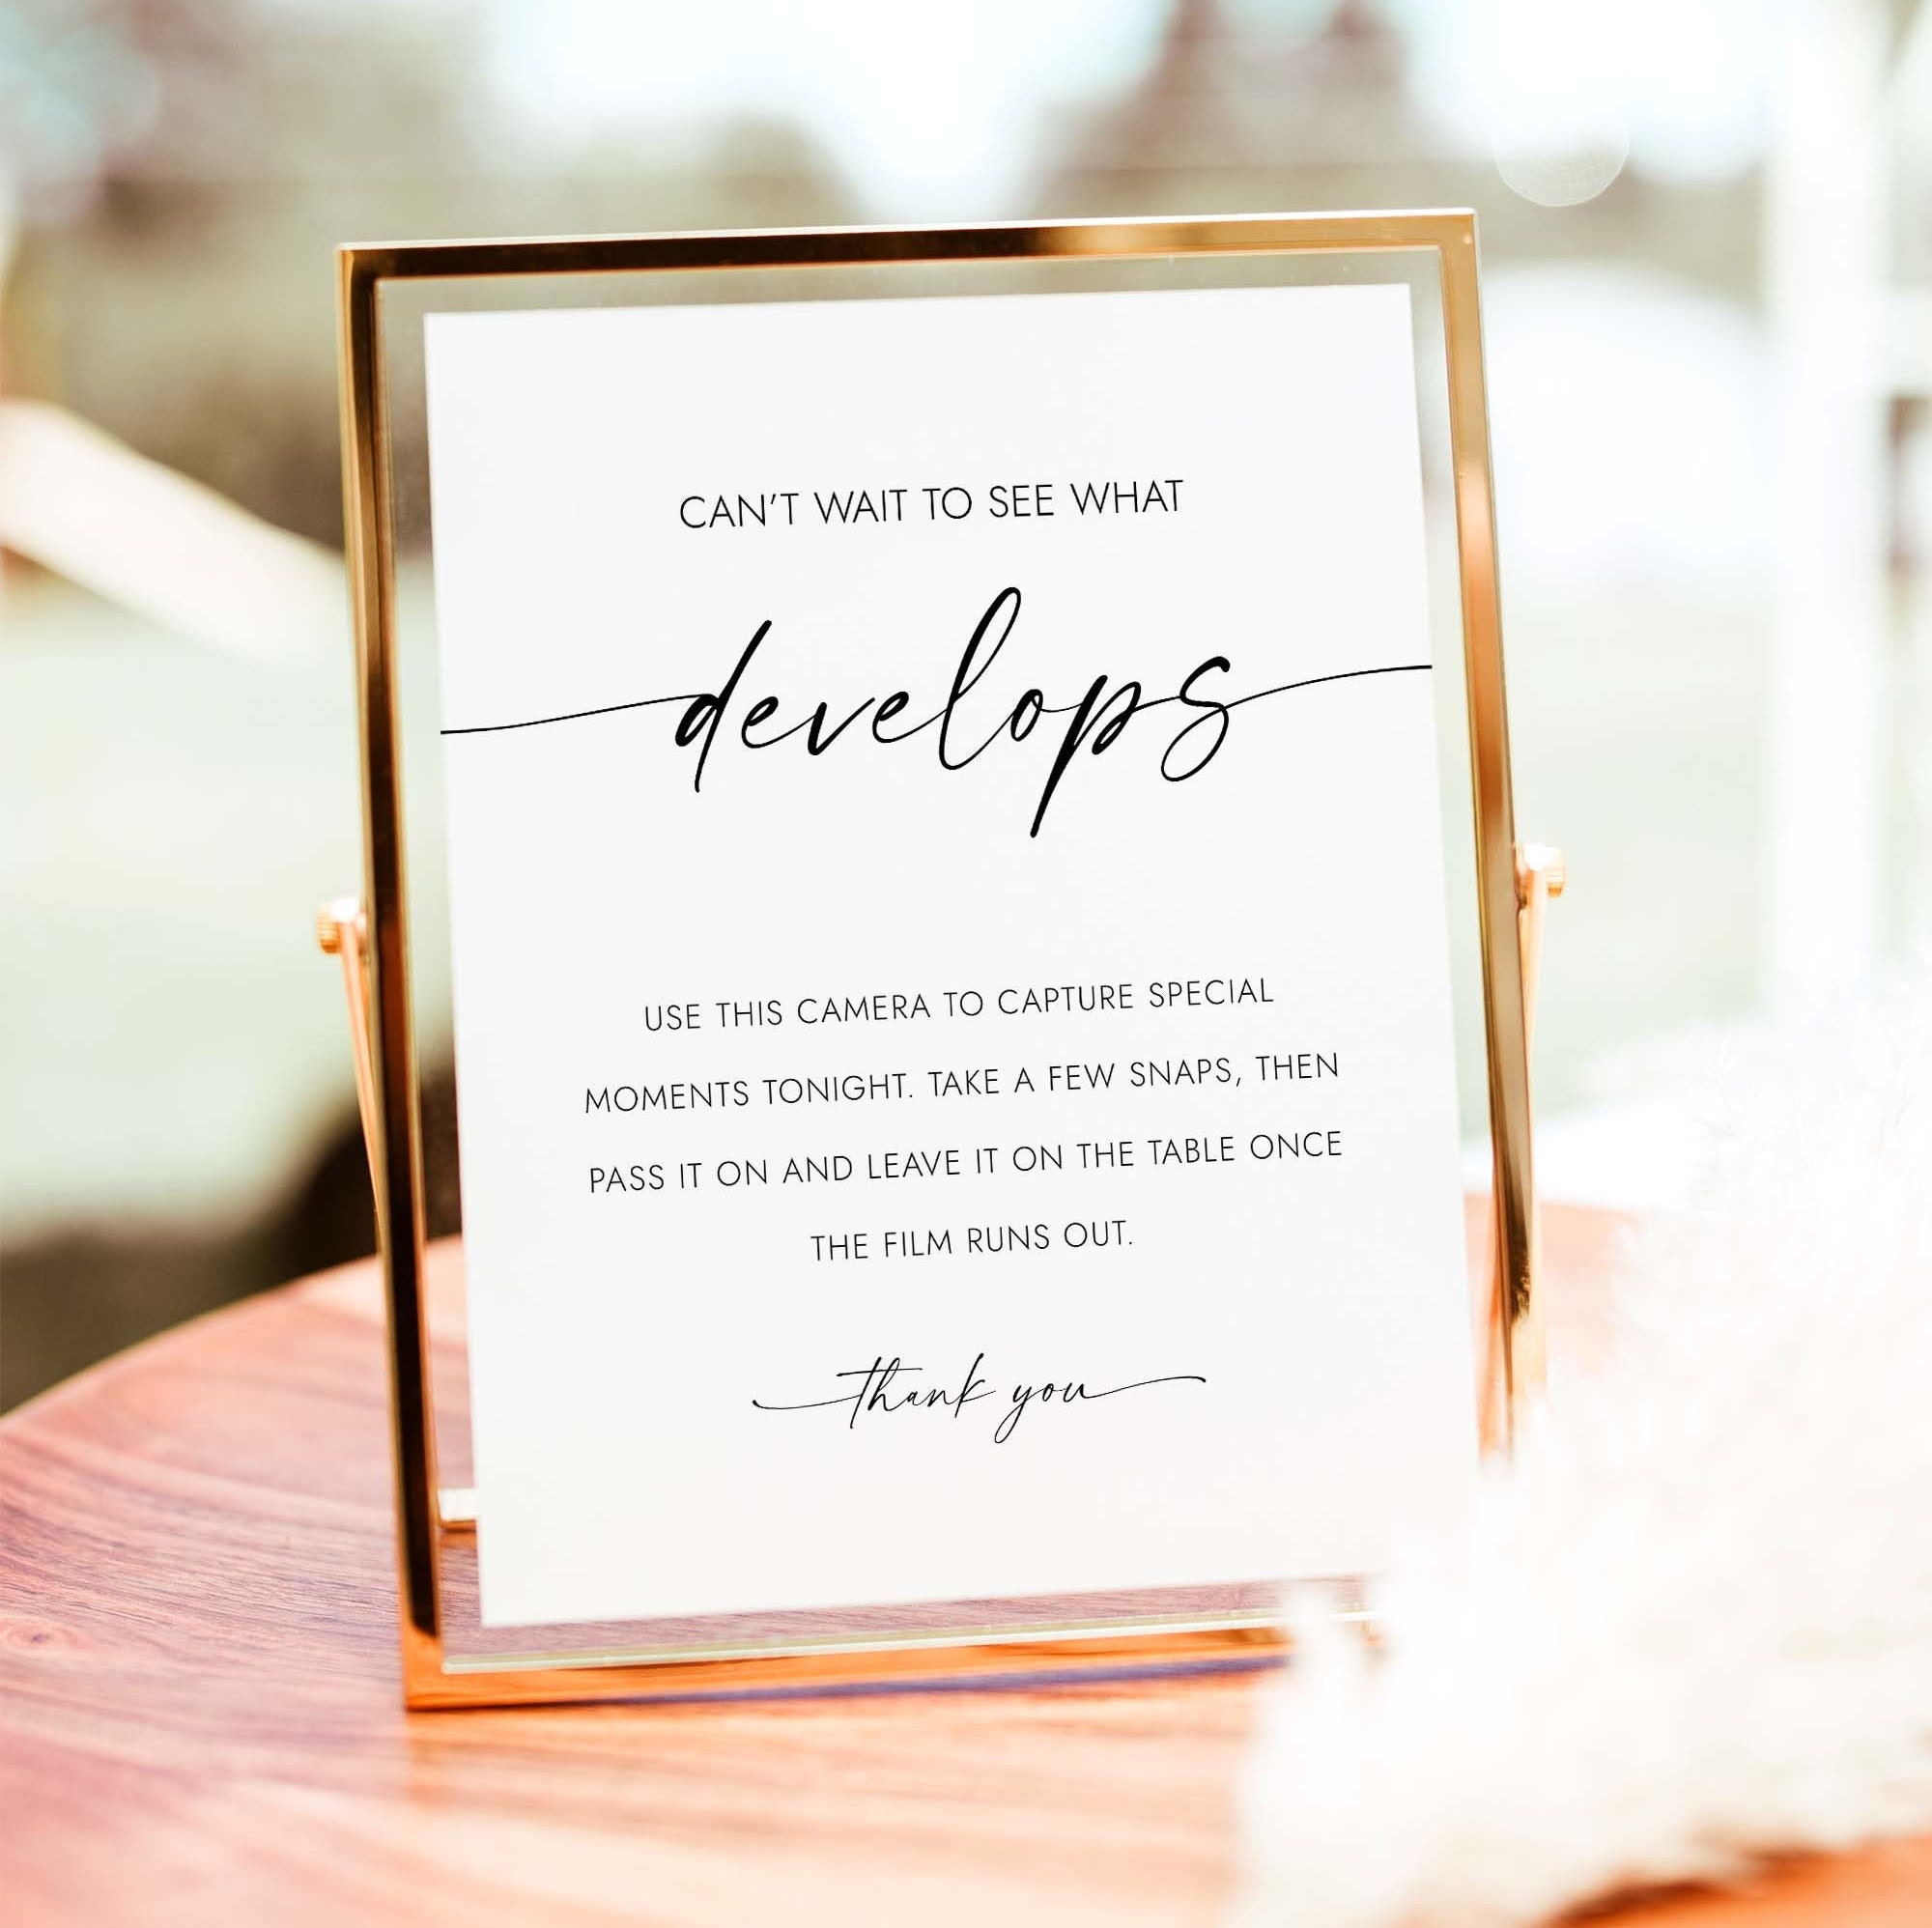 CAN'T WAIT TO SEE WHAT
develops
USE THIS CAMERA TO CAPTURE SPECIAL
MOMENTS TONIGHT. TAKE A FEW SNAPS, THEN
PASS IT ON AND LEAVE IT ON THE TABLE ONCE
THE FILM RUNS OUT.
thank you